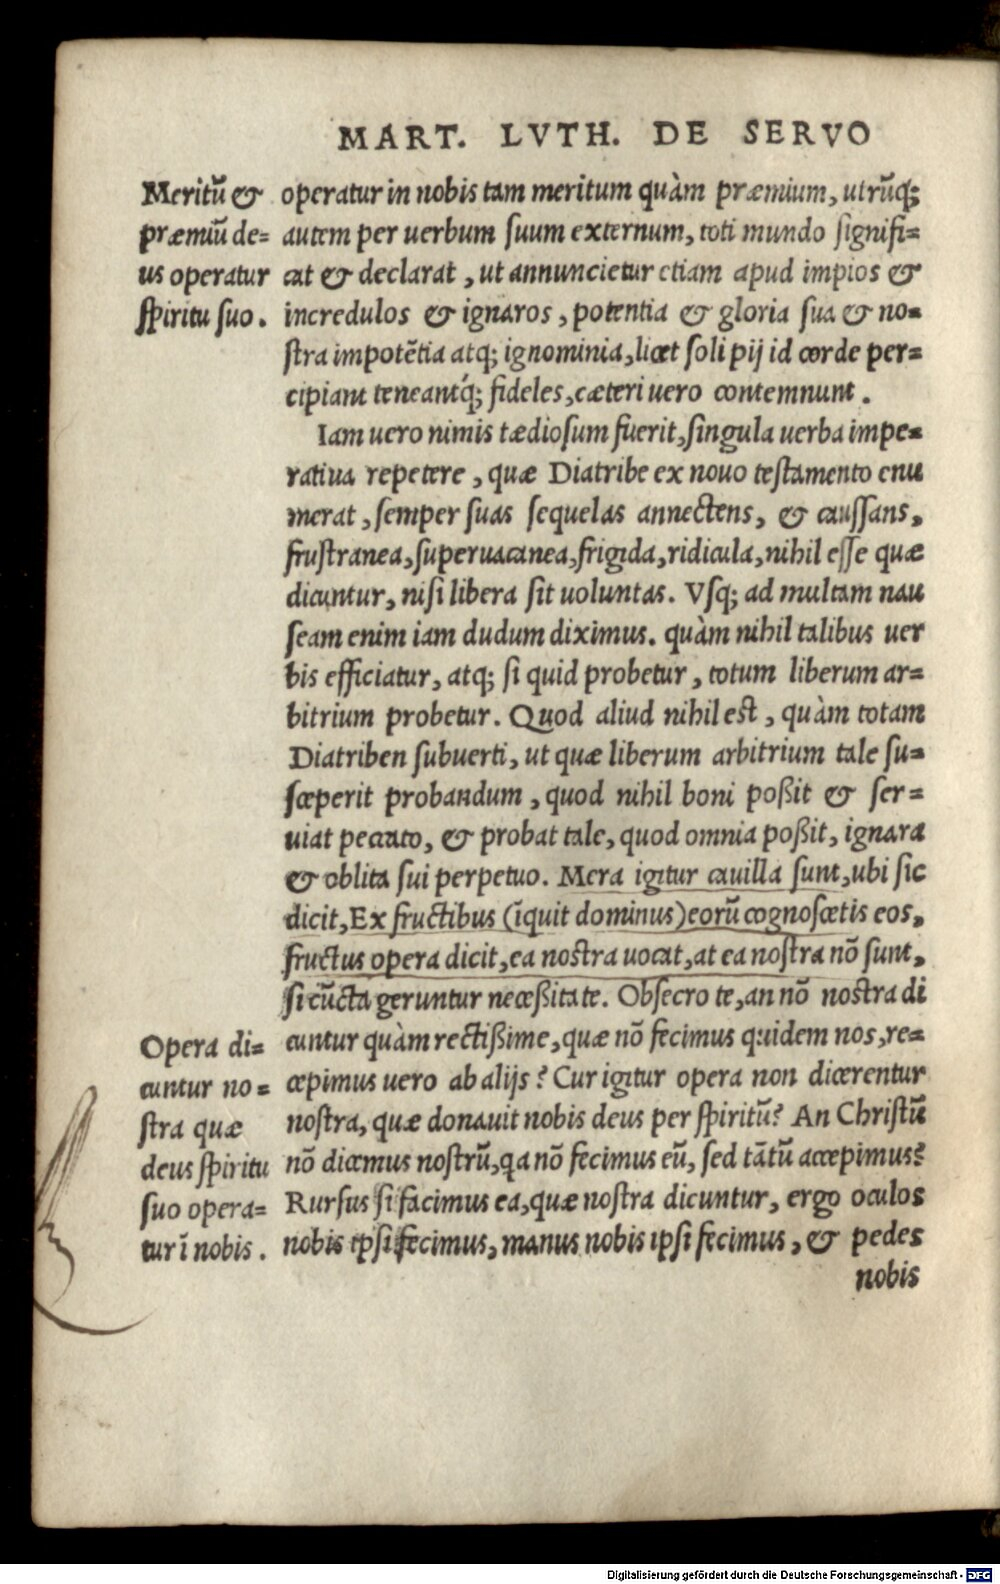 MART. LVTH. DE SERVO
Meritũ &
præmiũ de=
us operatur
ſpiritu ſuo.
operatur in nobis tam meritum quàm præmium, utrũq;
autem per uerbum ſuum externum, toti mundo ſignifi=
cat & declarat, ut annuncietur etiam apud impios &
incredulos & ignaros, potentia & gloria ſua & no=
ſtra impotẽtia atq; ignominia, licet ſoli pij id corde per=
cipiant teneantq́; fideles, cæteri uero contemnunt.
Iam uero nimis tædioſum fuerit, ſingula uerba impe=
ratiua repetere, quæ Diatribe ex nouo teſtamento enu
merat, ſemper ſuas ſequelas annectens, & cauſſans,
fruſtranea, ſuperuacanea, frigida, ridicula, nihil eſſe quæ
dicuntur, niſi libera ſit uoluntas. Vſq; ad multam nau
ſeam enim iam dudum diximus. quàm nihil talibus uer
bis efficiatur, atq; ſi quid probetur, totum liberum ar=
bitrium probetur. Quod aliud nihil eſt, quàm totam
Diatriben ſubuerti, ut quæ liberum arbitrium tale ſu=
ſceperit probandum, quod nihil boni poßit & ſer=
uiat peccato, & probat tale, quod omnia poßit, ignara
& oblita ſui perpetuo. Mera igitur cauilla ſunt, ubi ſic
dicit, Ex fructibus (ĩquit dominus) eorũ cognoſcetis eos,
fructus opera dicit, ea noſtra uocat, at ea noſtra nõ ſunt,
ſi cũcta geruntur neceßitate. Obſecro te, an nõ noſtra di
cuntur quàm rectißime, quæ nõ fecimus quidem nos, re=
cepimus uero ab alijs? Cur igitur opera non dicerentur
noſtra, quæ donauit nobis deus per ſpiritũ? An Chriſtũ
nõ dicemus noſtrũ, qa nõ fecimus eũ, ſed tãtũ accepimus?
Rurſus ſi facimus ea, quæ noſtra dicuntur, ergo oculos
nobis ipſi fecimus, manus nobis ipſi fecimus, & pedes
Opera di=
cuntur no=
ſtra quæ
deus ſpiritu
ſuo opera=
tur ĩ nobis.
nobis
Digitalisierung gefördert durch die Deutsche Forschungsgemeinschaft - DFG